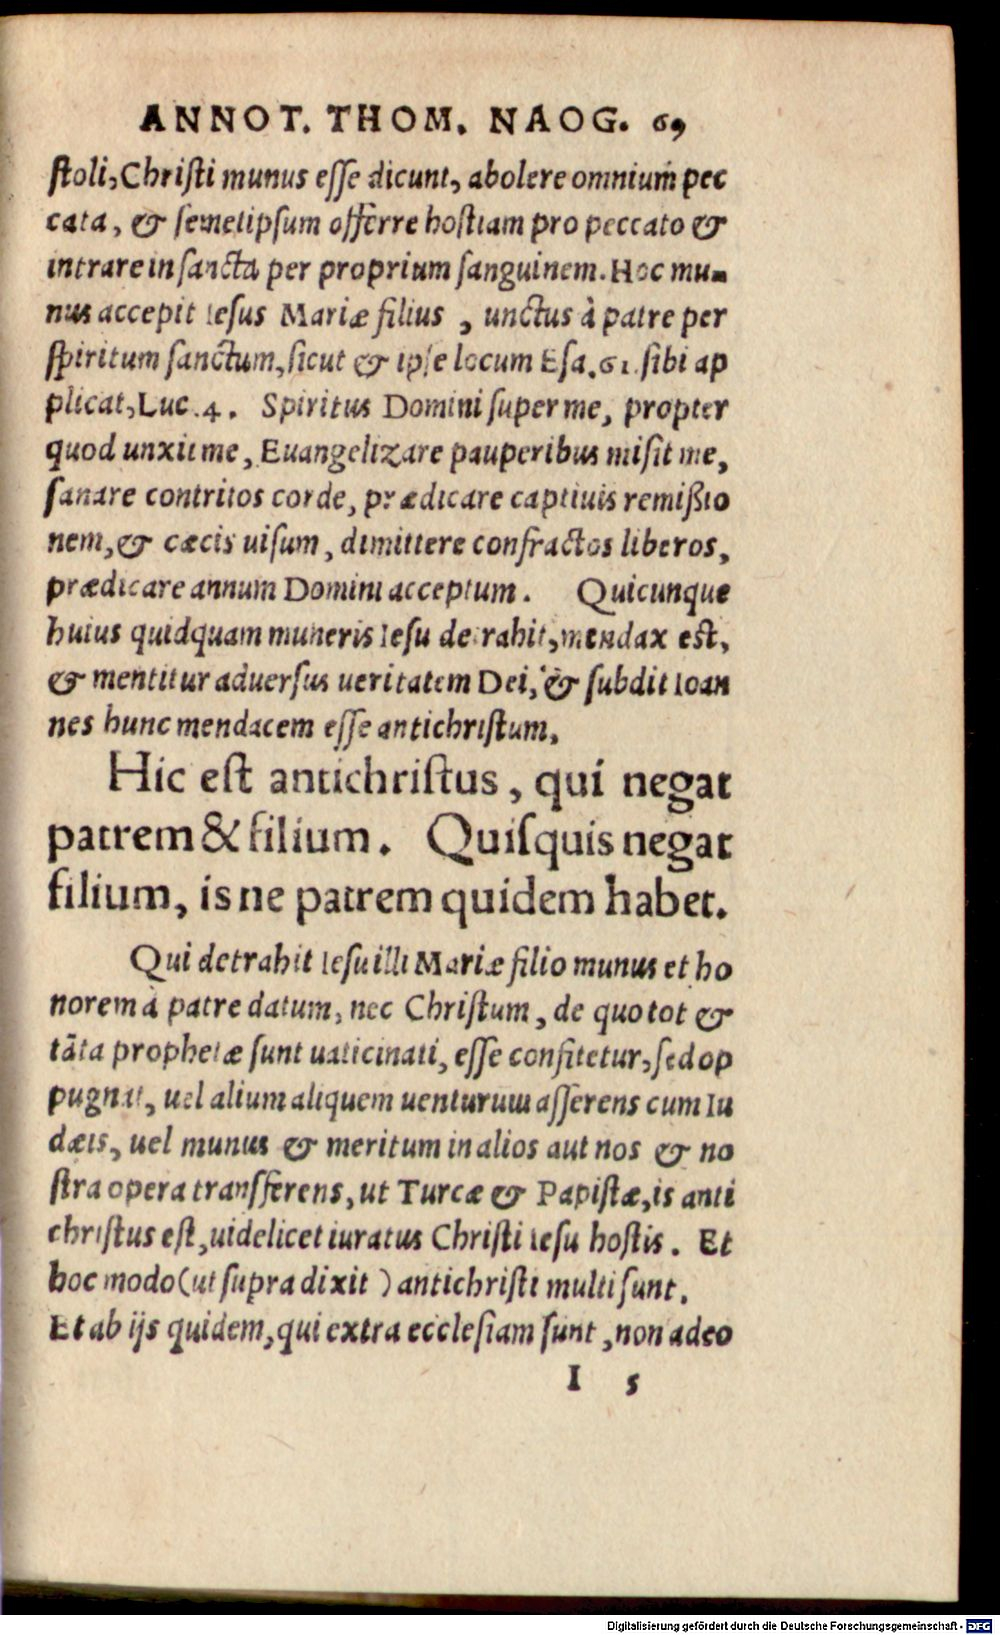 ANNOT. THOM. NAOG. 69
ſtoli, Chriſti munus eſſe dicunt, abolere omnium pec
cata, & ſemetipſum offerre hoſtiam pro peccato &
intrare in ſancta per proprium ſanguinem. Hoc mu-
nus accepit Ieſus Mariæ filius , unctus à patre per
ſpiritum ſanctum, ſicut & ipſe locum Eſa. 61. ſibi ap
plicat, Luc. 4. Spiritus Domini ſuper me, propter
quod unxit me, Euangelizare pauperibus miſit me,
ſanare contritos corde, prædicare captiuis remißio
nem, & cæcis uiſum, dimittere confractos liberos,
prædicare annum Domini acceptum. Quicunque
huius quidquam muneris Ieſu detrahit, mendax est,
& mentitur aduerſus ueritatem Dei, & ſubdit Ioan
nes hunc mendacem eſſe antichriſtum.
Hic eſt antichriſtus, qui negat
patrem & filium. Quiſquis negat
filium, is ne patrem quidem habet.
Qui detrahit Ieſu illi Mariæ filio munus et ho
norem à patre datum, nec Chriſtum, de quo tot &
tāta prophetæ ſunt uaticinati, eſſe confitetur, ſed op
pugnat, uel alium aliquem uenturum aſſerens cum Iu
dæis, uel munus & meritum in alios aut nos & no
ſtra opera transferens, ut Turcæ & Papiſtæ, is anti
chriſtus eſt, uidelicet iuratus Chriſti Ieſu hoſtis. Et
hoc modo (ut ſupra dixit ) antichriſti multi ſunt.
Et ab ijs quidem, qui extra eccleſiam ſunt, non adeo
I 5
Digitalisierung gefördert durch die Deutsche Forschungsgemeinschaft - DFG